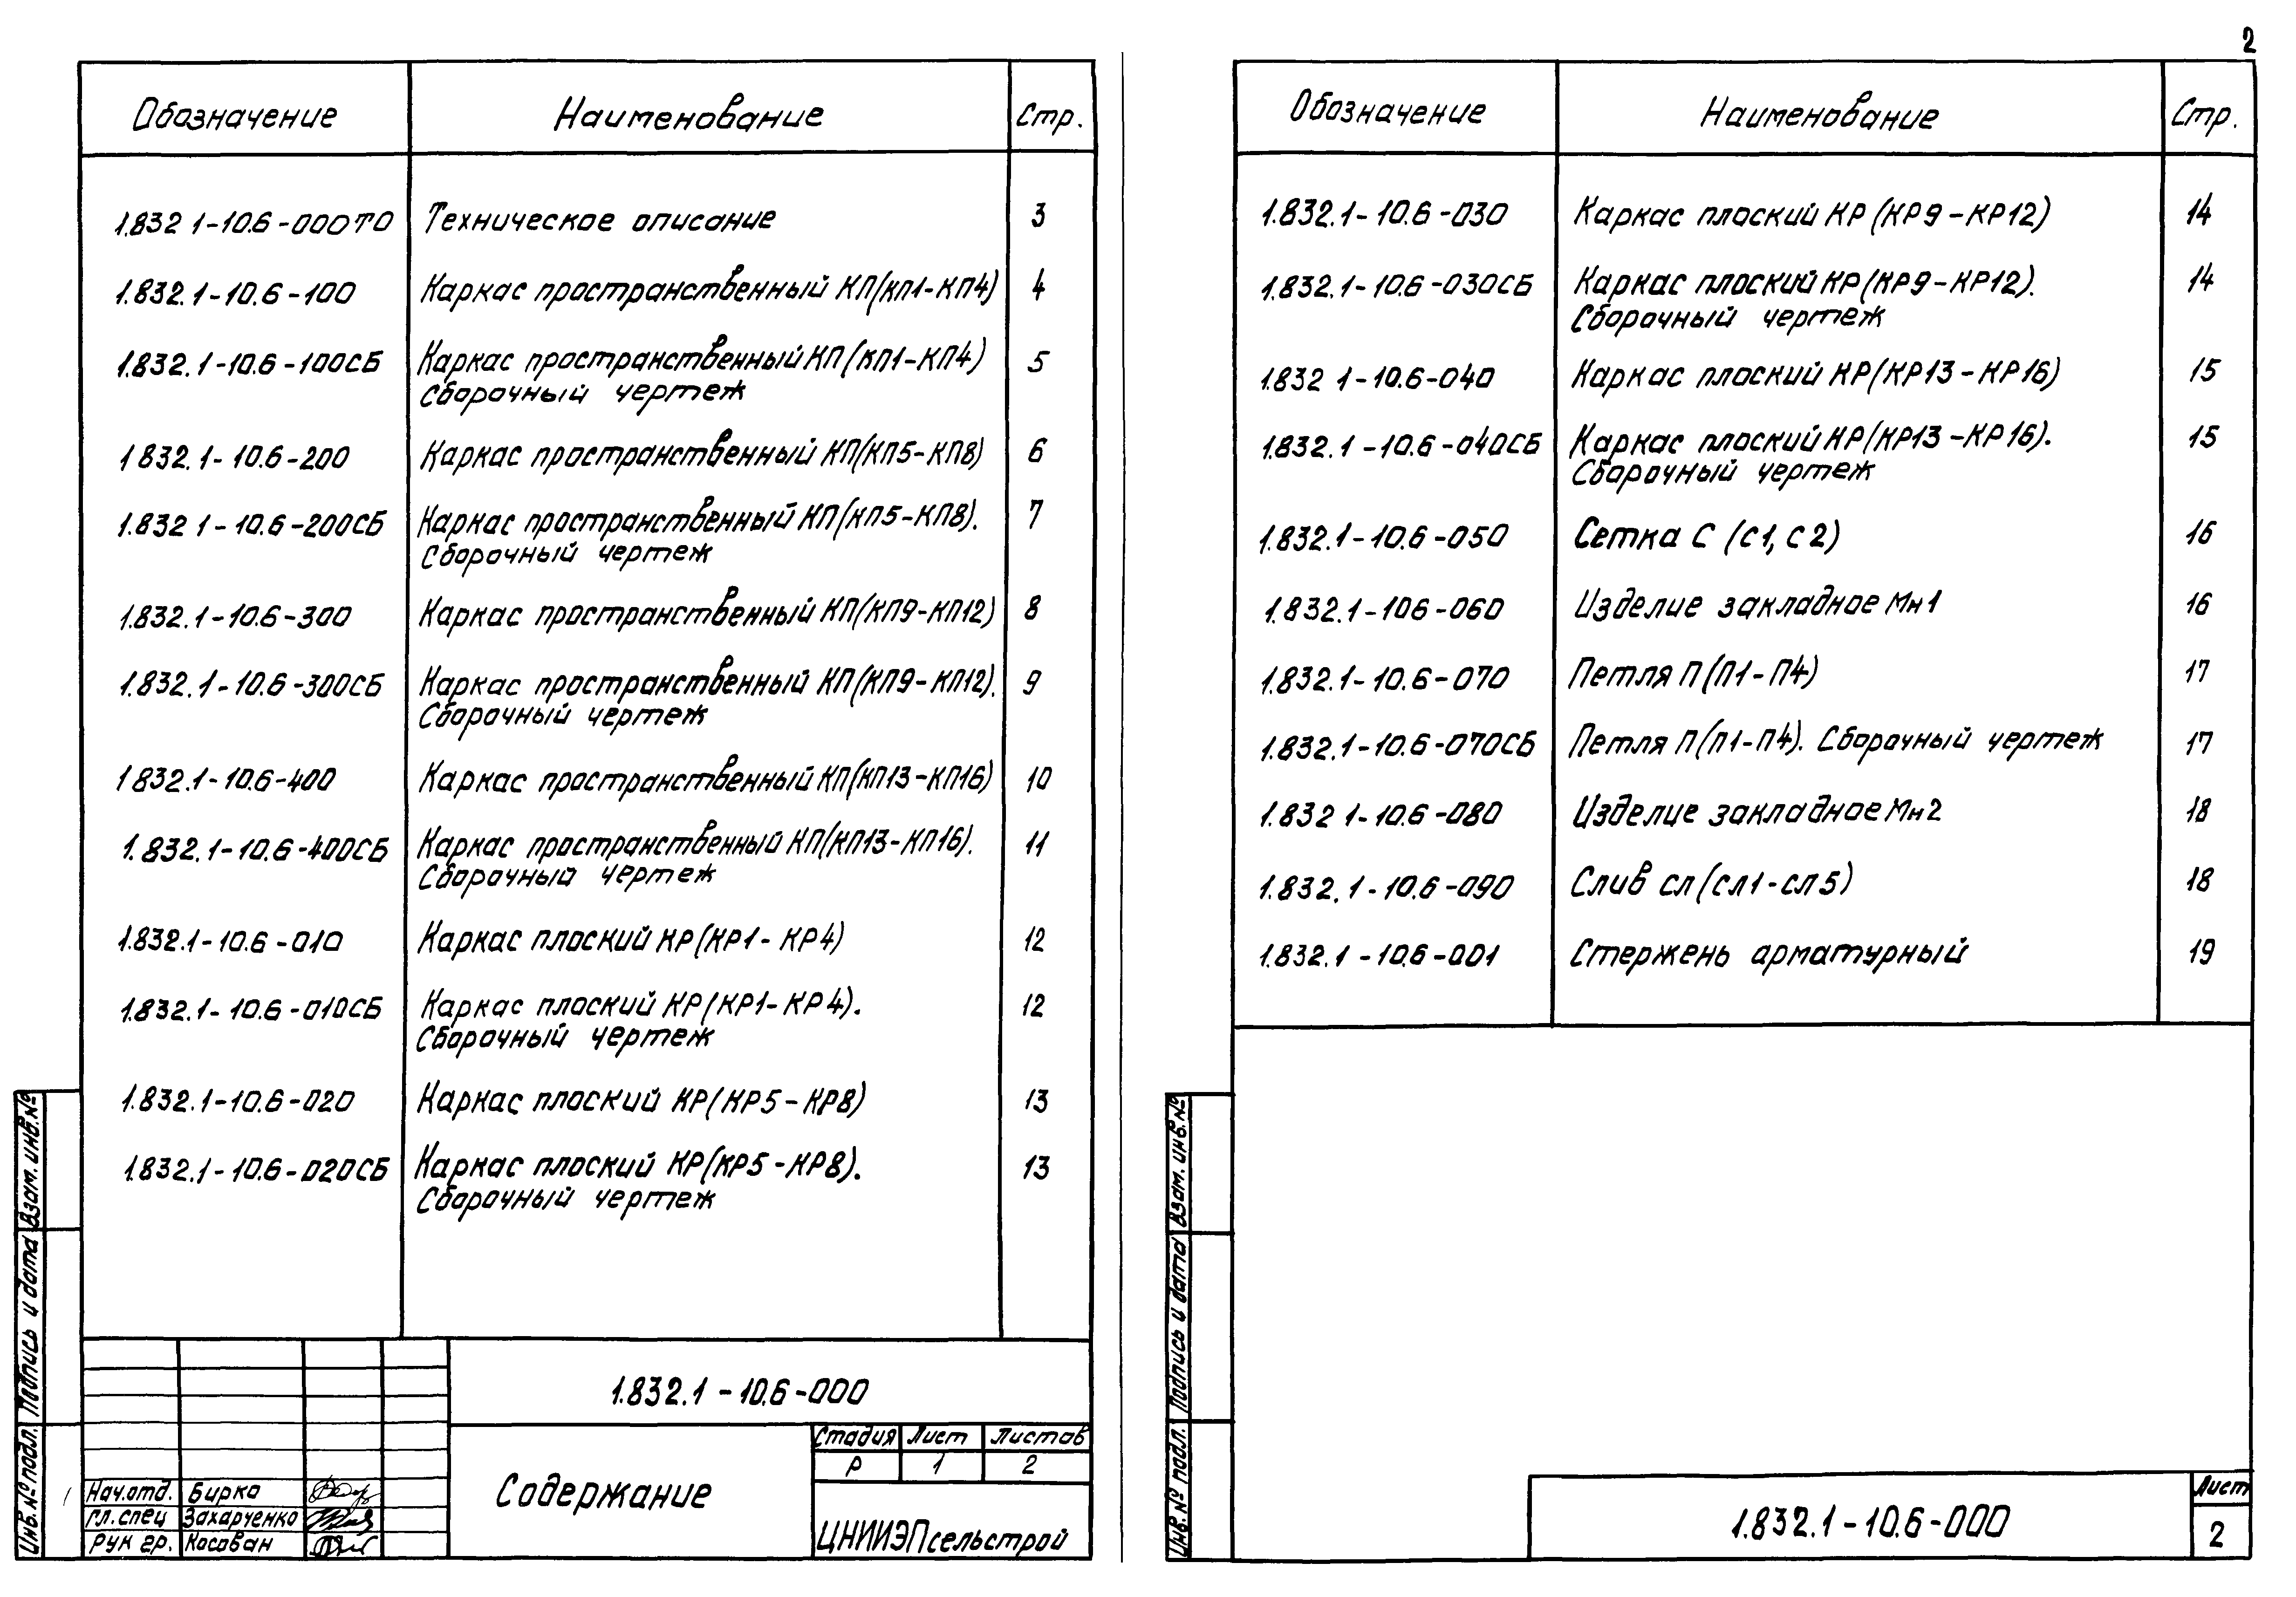 2
Обозначение Наименование Стр.
1.832 1-10.6-000ТО Техническое описание 3
1.832.1-10.6-100 Каркас пространственный КП(КП1-КП4) 4
1.832.1-10.6-100СБ Каркас пространственный КП(КП1-КП4) 5
Сборочный чертеж
1 832.1-10.6-200 Каркас пространственный КП(КП5-КП8) 6
1.832 1-10.6-200СБ Каркас пространственный КП(КП5-КП8). 7
Сборочный чертеж
1.832.1-10.6-300 Каркас пространственный КП(КП9-КП12) 8
1.832.1-10.6-300СБ Каркас пространственный КП(КП9-КП12). 9
Сборочный чертеж
1 832.1-10.6-400 Каркас пространственный КП(КП13-КП16) 10
1.832.1-10.6-400СБ Каркас пространственный КП(КП13-КП16). 11
Сборочный чертеж
1.832.1-10.6-010 Каркас плоский КР(КР1-КР4) 12
1.832.1-10.6-010СБ Каркас плоский КР(КР1-КР4). 12
Сборочный чертеж
1.832.1-10.6-020 Каркас плоский КР(КР5-КР8) 13
1.832.1-10.6-020СБ Каркас плоский КР(КР5-КР8). 13
Сборочный чертеж
1.832.1-10.6-000
Содержание
Стадия Лист Листов
Р 1 2
ЦНИИЭПсельстрой
Нач.отд. Бирка
Гл.спец Захарченко
Рук гр. Косован
Инв.№ подл. Подпись и дата Взам. инв.№
Обозначение Наименование Стр.
1.832.1-10.6-030 Каркас плоский КР(КР9-КР12) 14
1.832.1-10.6-030СБ Каркас плоский КР(КР9-КР12). 14
Сборочный чертеж
1.832 1-10.6-040 Каркас плоский КР(КР13-КР16) 15
1.832.1-10.6-040СБ Каркас плоский КР(КР13-КР16). 15
Сборочный чертеж
1.832.1-10.6-050 Сетка С (С1, С2) 16
1.832.1-106-060 Изделие закладное Мн1 16
1.832.1-10.6-070 Петля П(П1-П4) 17
1.832.1-10.6-070СБ Петля П(П1-П4). Сборочный чертеж 17
1.832 1-10.6-080 Изделие закладное Мн2 18
1.832.1-10.6-090 Слив сл(сл1-сл5) 18
1.832.1-10.6-001 Стержень арматурный 19
1.832.1-10.6-000
Лист
2
Инв.№ подл. Подпись и дата Взам. инв.№